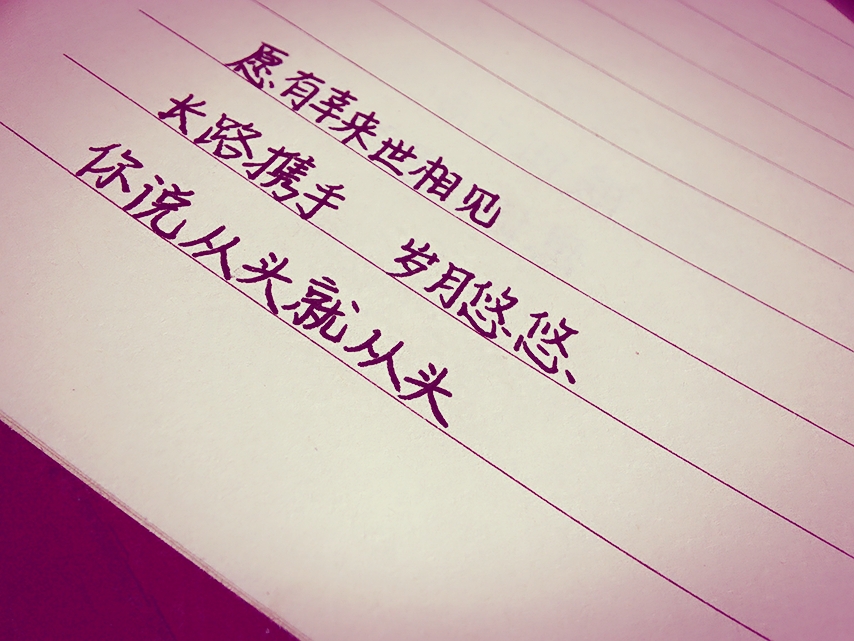 愿有幸来世相见
长路携手 岁月悠悠
你说从头就从头